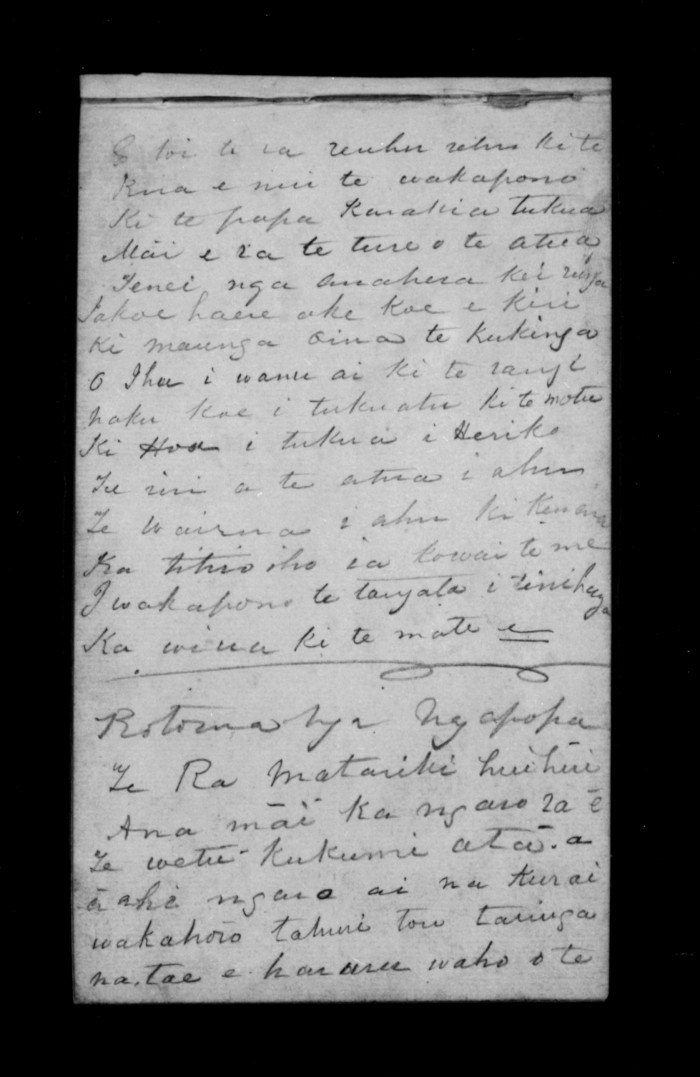 E toi te ra reuhu rehu ki te
Rua e mii te wakapono
Ki te papa Karakia tukua
Mai e ra te ture o te atua
Tenei nga Anahera kii runga
Takoe haere ake koe e kiri
Ki maunga Oina te kukinga
O Ihu i wanu ai ki te rangi
naku koe i tukuatu ki te motu
Ki i tukua i Heriko
Te iri a te atua i ahu
Te Wairua i ahu ki Kenana
Ka titiro iho ia kowai te me
I wakapono te tangata i rinihanga
Ka wiua ki te mate e
Rotoma Ngapopa
Te Ra Matariki huihui
Ana māi ka ngaro ra ē
Te wetu kukume atā.a
ā ahi ngaro ai na Kurai
wakahoro tahuri tou taringa
na.tae e hararu waho o te